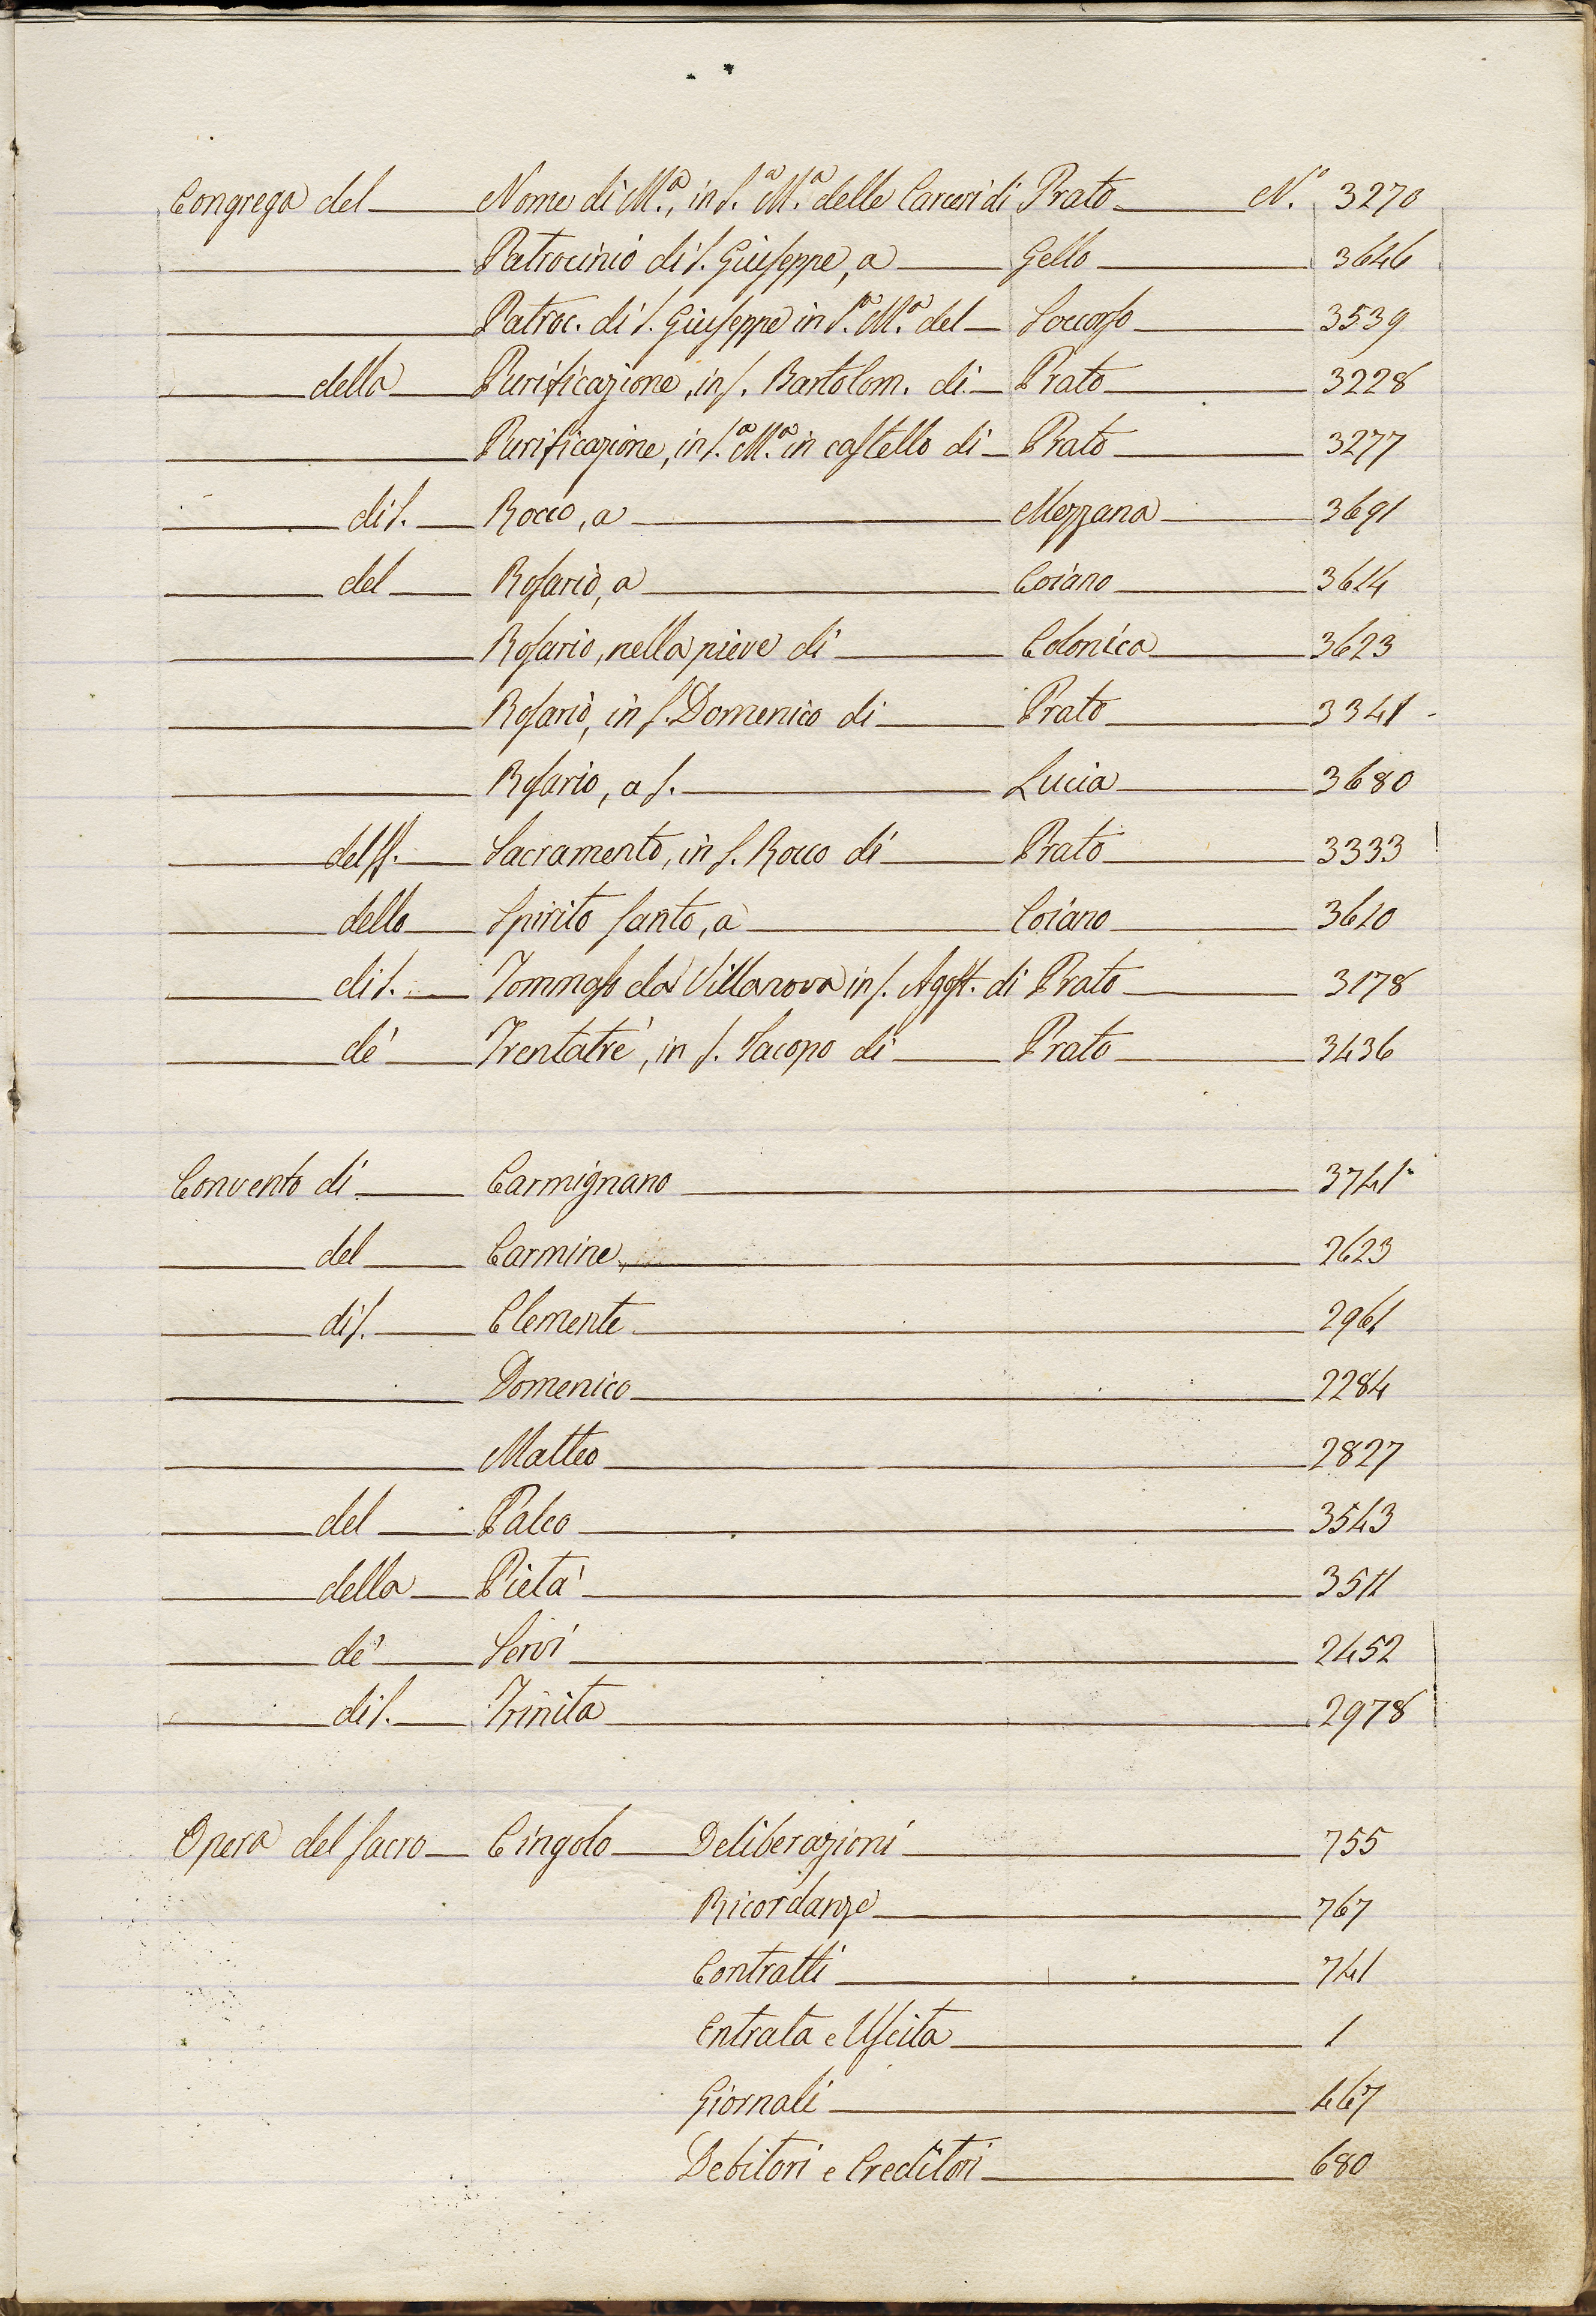 Congrega del Nome di M.ª, in S.ª M.ª delle Carceri di Prato N.º 3270
Patrocinio di S. Giuseppe, a Gello 3646
Patroc. di S. Giuseppe in S.ª M.ª del Soccorso 3539
della Purificazione, in S. Bartolom. di Prato 3228
Purificazione, in S.ª M.ª in castello di Prato 3277
di S. Rocco, a Mezzana 3691
del Rosario, a Coiano 3614
Rosario, nella pieve di Colonica 3623
Rosario, in S. Domenico di Prato 3341
Rosario, a S. Lucia 3680
del SS. Sacramento, in S. Rocco di Prato 3333
dello Spirito Santo, a Coiano 3610
di S. Tommaso da Villanova in S. Agost. di Prato 3178
de' Trentatrè, in S. Iacopo di Prato 3436
Convento di Carmignano 3741
del Carmine 2623
di S. Clemente 2961
Domenico 2284
Matteo 2827
del Palco 3543
della Pietà 3511
de' Servi 2452
di S. Trinita 2978
Opera del Sacro Cingolo Deliberazioni 755
Ricordanze 767
Contratti 741
Entrata e Uscita 1
Giornali 467
Debitori e Creditori 680